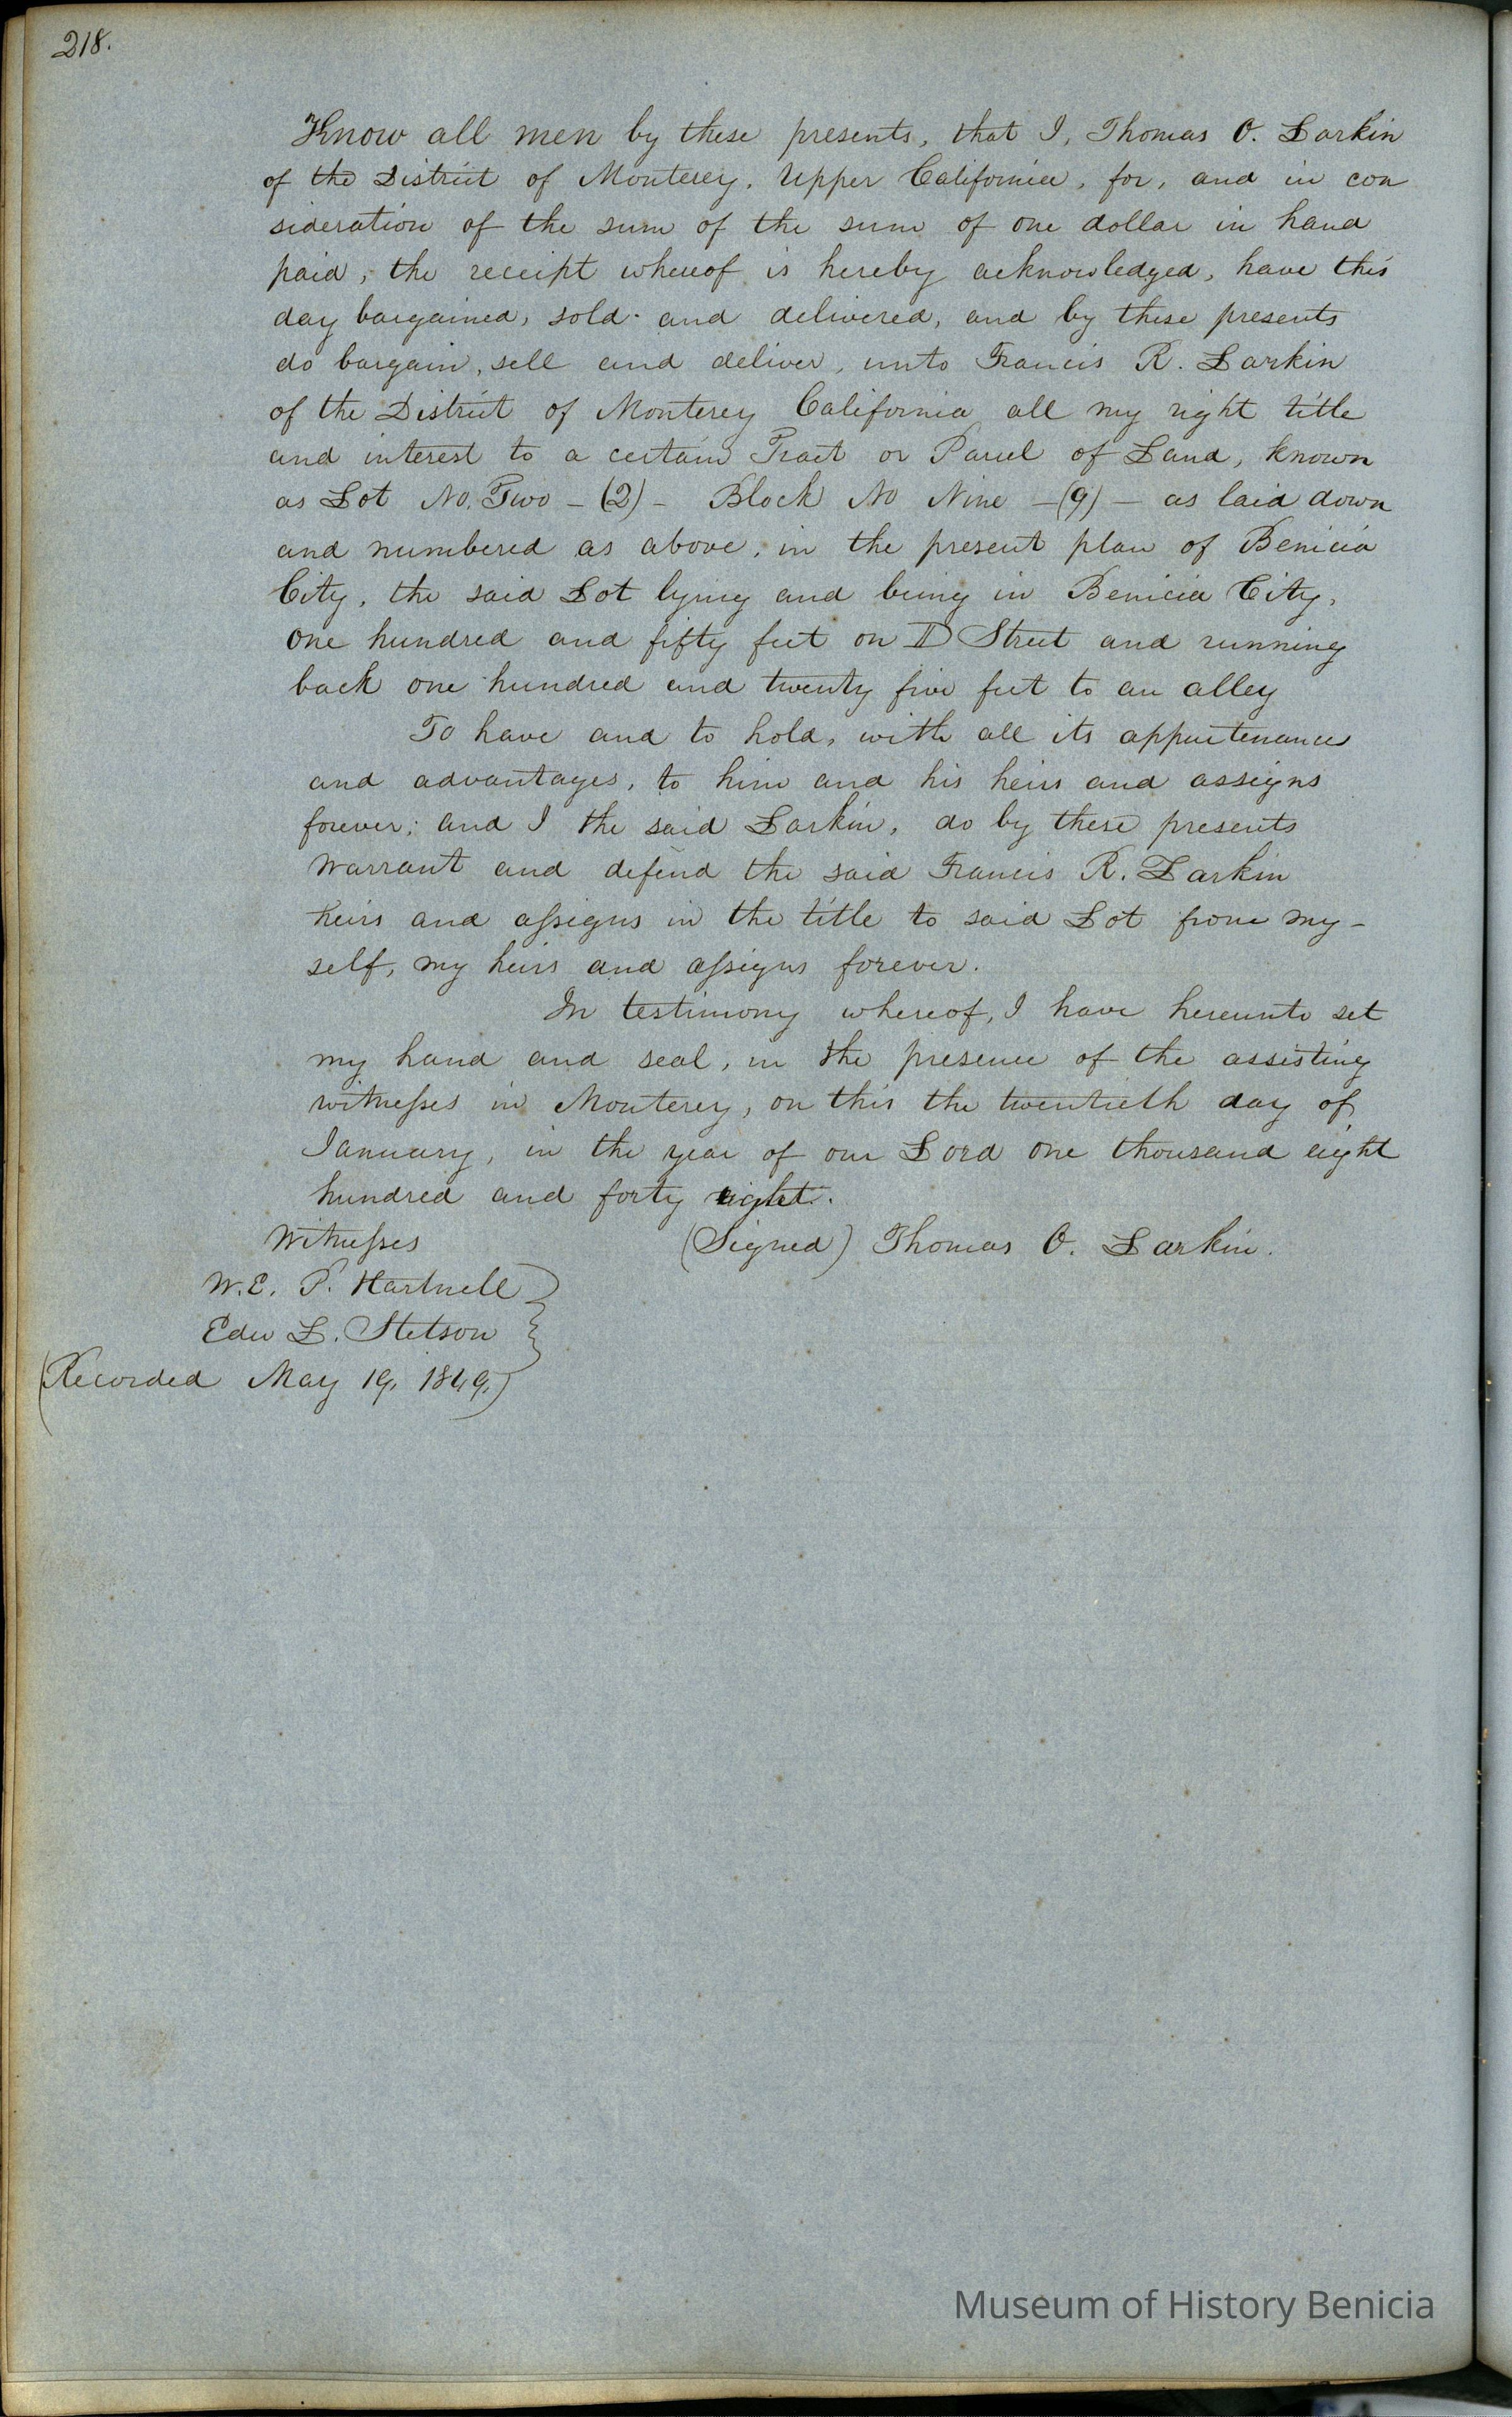 218.
Know all men by these presents, that I, Thomas O. Larkin
of the District of Monterey, Upper California, for, and in con
sideration of the sum of the sum of one dollar in hand
paid, the receipt whereof is hereby acknowledged, have this
day bargained, sold and delivered, and by these presents
do bargain, sell and deliver, unto Francis R. Larkin
of the District of Monterey California all my right title
and interest to a certain Tract or Parcel of Land, known
as Lot No. Two - (2) - Block No Nine - (9) - as laid down
and numbered as above, in the present plan of Benicia
City, the said Lot lying and being in Benicia City,
one hundred and fifty feet on D Street and running
back one hundred and twenty five feet to an alley
To have and to hold, with all its appurtenances
and advantages, to him and his heirs and assigns
forever; and I the said Larkin, do by these presents
warrant and defend the said Francis R. Larkin
heirs and assigns in the title to said Lot from my-
self, my heirs and assigns forever.
In testimony whereof, I have hereunto set
my hand and seal, in the presence of the assisting
witnesses in Monterey, on this the twentieth day of
January, in the year of our Lord one thousand eight
hundred and forty eight.
Witnesses (Signed) Thomas O. Larkin.
W. E. P. Hartnell
Edw L. Stetson
(Recorded May 19, 1849,)
Museum of History Benicia